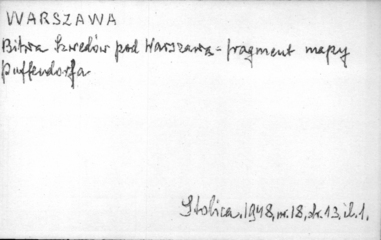 WARSZAWA
Bitwa Szwedów pod Warszawą - fragment mapy
Puffendorfa
Stolica, 1948, nr. 18, str. 13, il. 1.